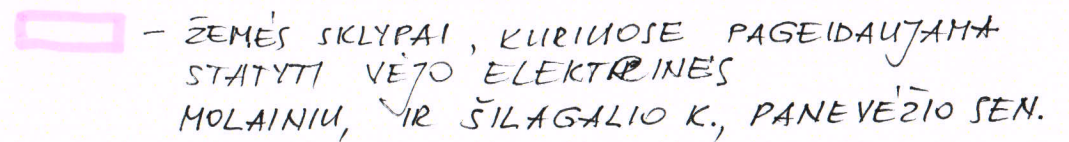 – ŽEMĖS SKLYPAI, KURIUOSE PAGEIDAUJAMA
STATYTI VĖJO ELEKTRINĖS
MOLAINIŲ, IR ŠILAGALIO K., PANEVĖŽIO SEN.